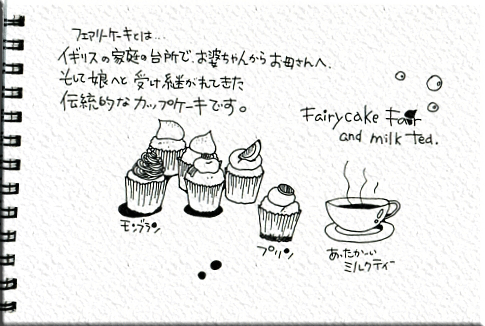 フェアリーケーキとは…
イギリスの家庭の台所で、お婆ちゃんからお母さんへ、
そして娘へと受け継がれてきた
伝統的なカップケーキです。
Fairycake Fair
and milk tea.
モンブラン
プリン
あったかーい
ミルクティー